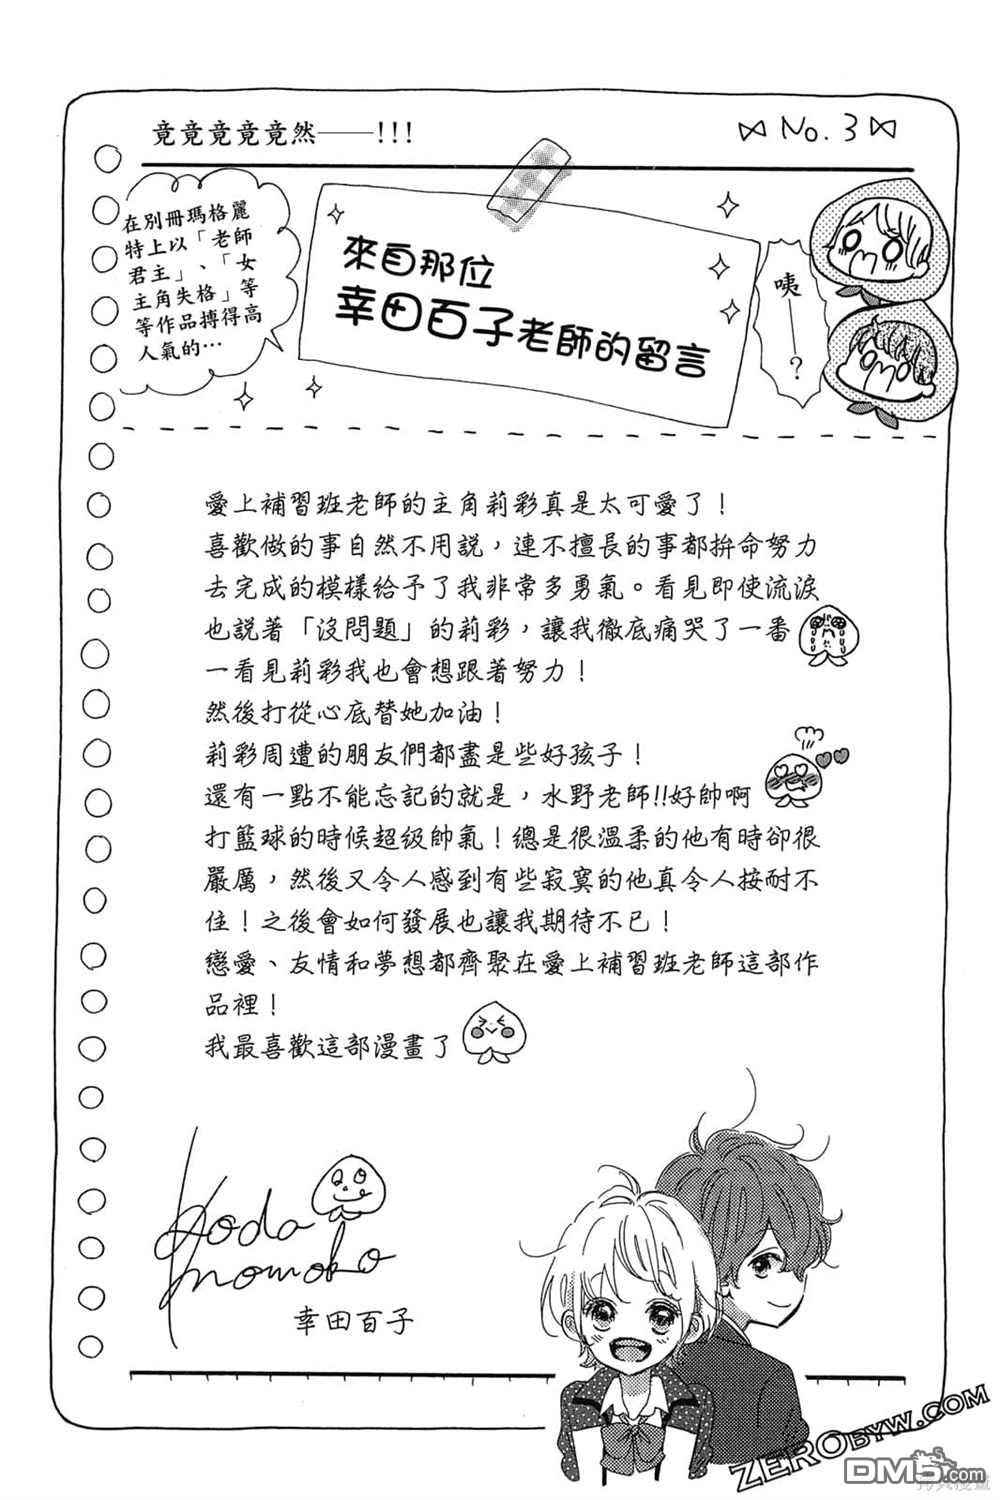 竟竟竟竟竟然——!!!
No. 3
在別冊瑪格麗
特上以「老師
君主」、「女
主角失格」等
等作品搏得高
人氣的…
來自那位
幸田百子老師的留言
咦——？
愛上補習班老師的主角莉彩真是太可愛了！
喜歡做的事自然不用說，連不擅長的事都拚命努力
去完成的模樣給予了我非常多勇氣。看見即使流淚
也說著「沒問題」的莉彩，讓我徹底痛哭了一番
一看見莉彩我也會想跟著努力！
然後打從心底替她加油！
莉彩周遭的朋友們都盡是些好孩子！
還有一點不能忘記的就是，水野老師!!好帥啊
打籃球的時候超級帥氣！總是很溫柔的他有時卻很
嚴厲，然後又令人感到有些寂寞的他真令人按耐不
住！之後會如何發展也讓我期待不已！
戀愛、友情和夢想都齊聚在愛上補習班老師這部作
品裡！
我最喜歡這部漫畫了
Koda
momoko
幸田百子
ZEROBYW.COM
DM5.com